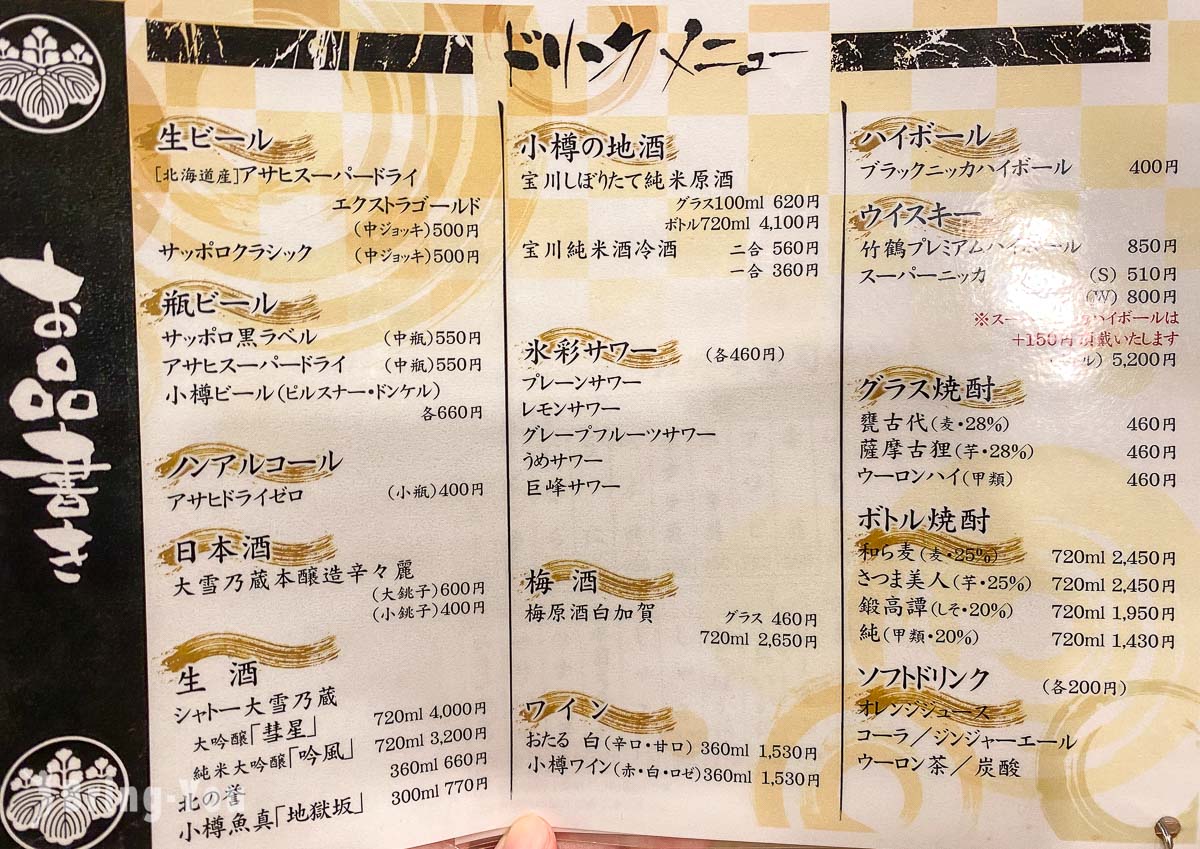 お品書き
ドリンクメニュー
生ビール
[北海道産]アサヒスーパードライ
エクストラゴールド
(中ジョッキ)500円
サッポロクラシック (中ジョッキ)500円
瓶ビール
サッポロ黒ラベル (中瓶)550円
アサヒスーパードライ (中瓶)550円
小樽ビール(ピルスナー・ドンケル)
各660円
ノンアルコール
アサヒドライゼロ (小瓶)400円
日本酒
大雪乃蔵本醸造辛々麗
(大銚子)600円
(小銚子)400円
生酒
シャトー大雪乃蔵
大吟醸「彗星」 720ml 4,000円
純米大吟醸「吟風」 720ml 3,200円
北の誉 360ml 660円
小樽魚真「地獄坂」 300ml 770円
小樽の地酒
宝川しぼりたて純米原酒
グラス100ml 620円
ボトル720ml 4,100円
宝川純米酒冷酒 二合 560円
一合 360円
氷彩サワー (各460円)
プレーンサワー
レモンサワー
グレープフルーツサワー
うめサワー
巨峰サワー
梅酒
梅原酒白加賀 グラス 460円
720ml 2,650円
ワイン
おたる 白(辛口・甘口) 360ml 1,530円
小樽ワイン(赤・白・ロゼ)360ml 1,530円
ハイボール
ブラックニッカハイボール 400円
ウイスキー
竹鶴プレミアムハイボール 850円
スーパーニッカ (S) 510円
(W) 800円
※スー ハイボールは
+150円 頂戴いたします
ル) 5,200円
グラス焼酎
甕古代(麦・28%) 460円
薩摩古狸(芋・28%) 460円
ウーロンハイ(甲類) 460円
ボトル焼酎
和ら麦(麦・25%) 720ml 2,450円
さつま美人(芋・25%) 720ml 2,450円
鍛高譚(しそ・20%) 720ml 1,950円
純(甲類・20%) 720ml 1,430円
ソフトドリンク (各200円)
オレンジジュース
コーラ/ジンジャーエール
ウーロン茶/炭酸